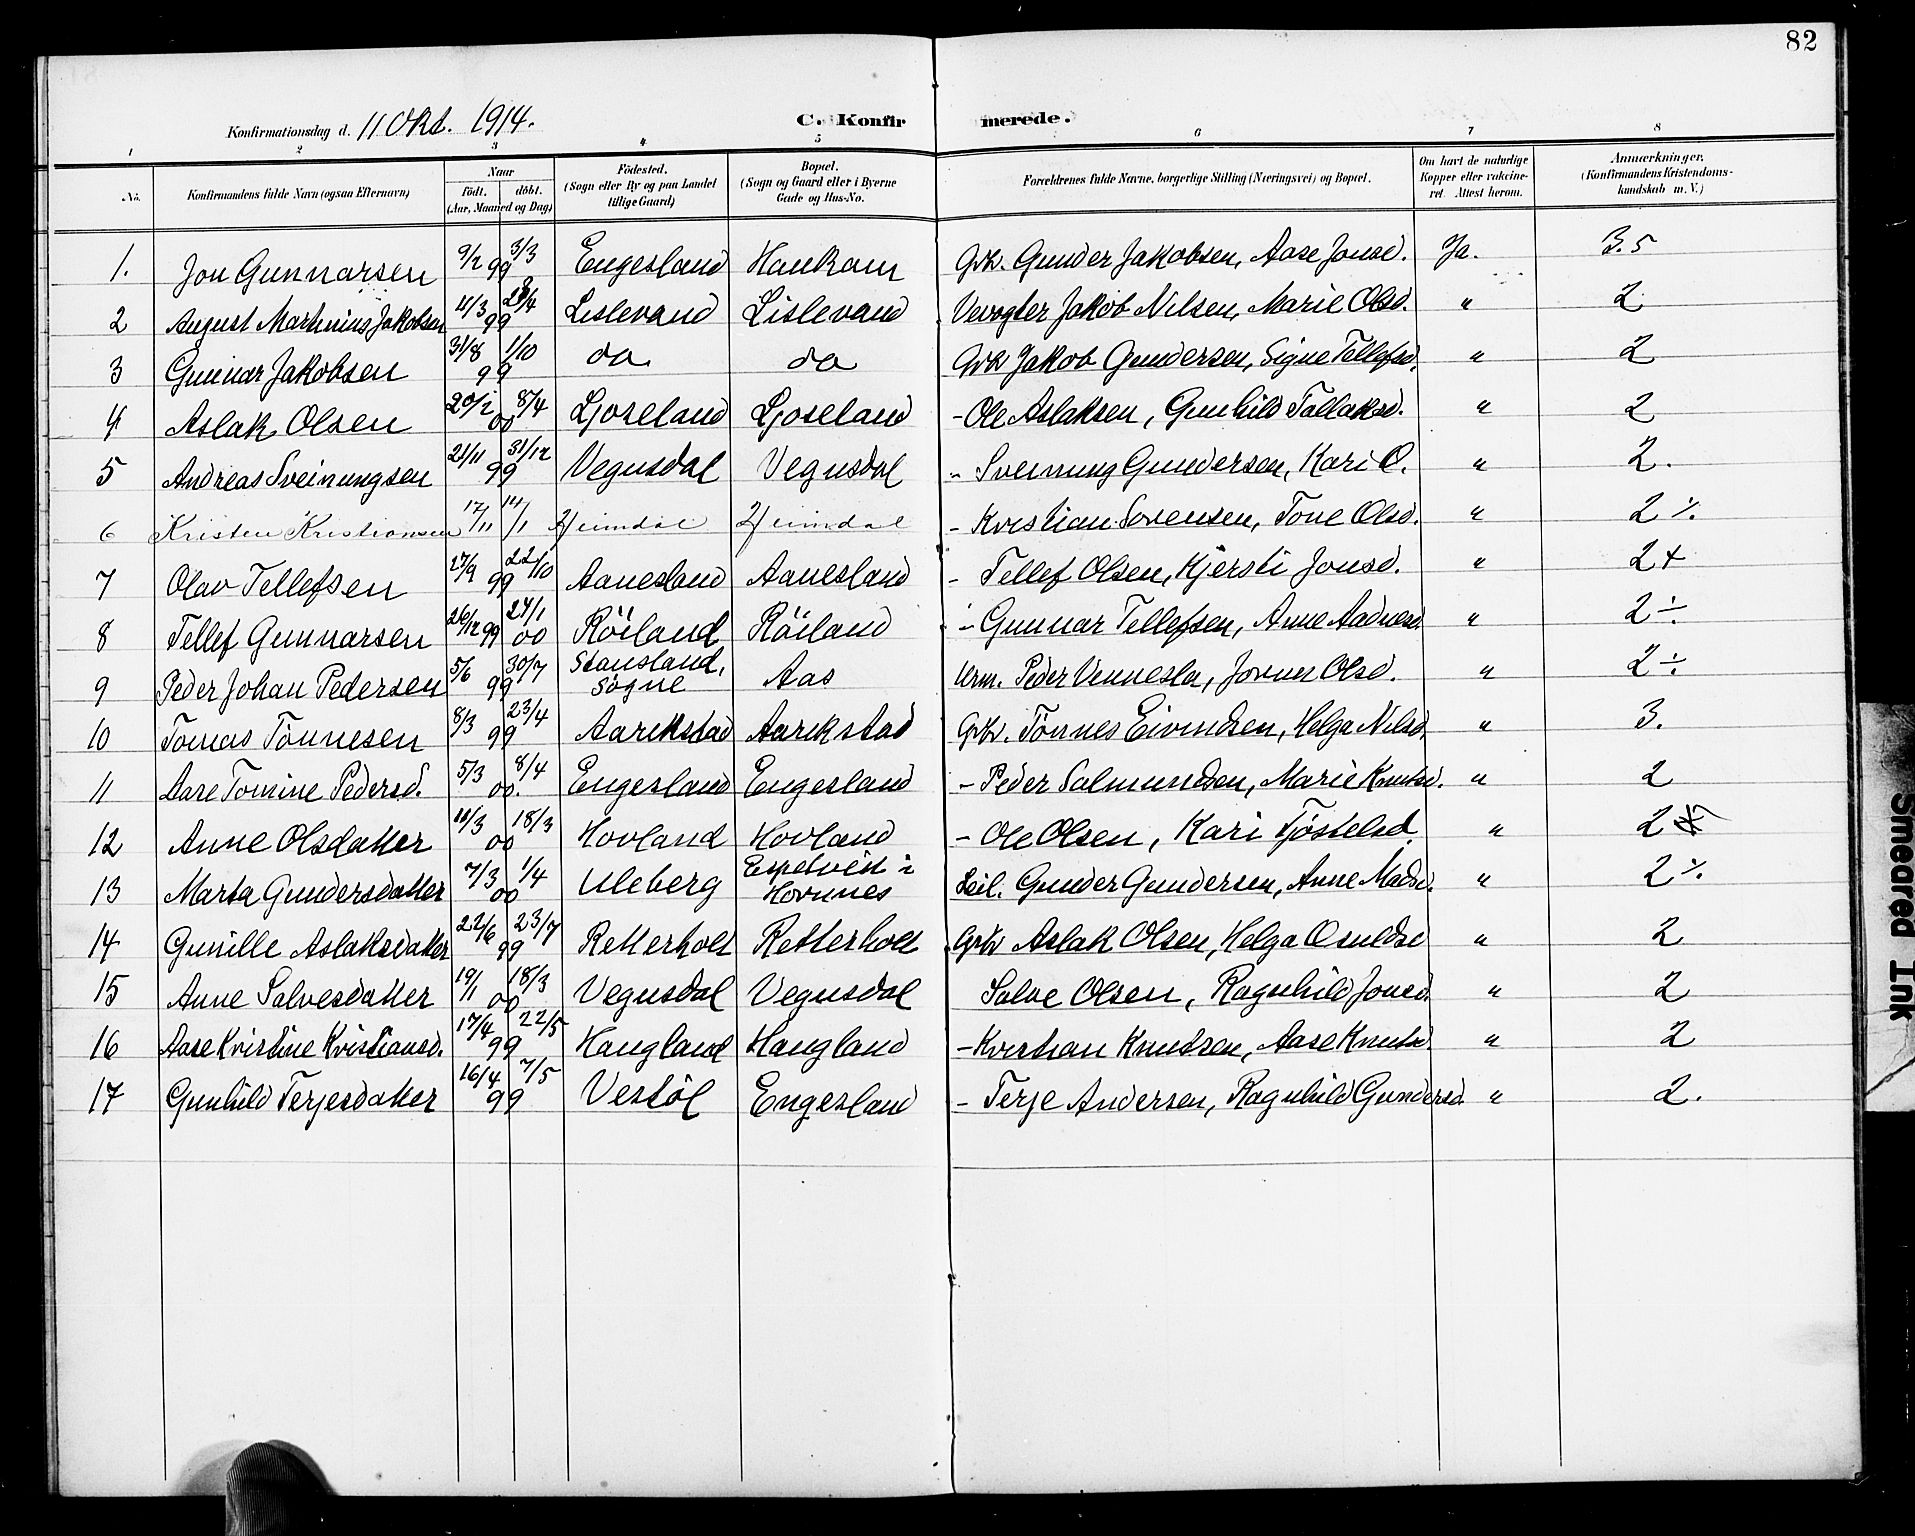 82
Konfirmationsdag d. 11 Okt. 1914. C. Konfirmerede.
1 2 3 4 5 6 7 8
No. Konfirmandens fulde Navn (ogsaa Efternavn) Naar Födt. döbt. (Aar, Maaned og Dag) Födested. (Sogn eller By og paa Landet tillige Gaard) Bopæl. (Sogn og Gaard eller i Byerne Gade og Hus-No. Forældrenes fulde Navne, borgerlige Stilling (Næringsvei) og Bopæl. Om havt de naturlige Kopper eller vakcineret. Attest herom. Anmærkninger. (Konfirmandens Kristendomskundskab m. V.)
1. Jon Gunnarsen 9/2 3/3 99 Engesland Haukom Gbr. Gunder Jakobsen, Aase Jonsd. Ja. 3.5
2 August Martinius Jakobsen 4/3 99 Lislevand Lislevand Jakob Nilsen, Marie Olsd. " 2
3 Gunnar Jakobsen 31/8 1/10 99 do do Gbr Jakob Gundersen, Signe Tellefsd. " 2
4 Aslak Olsen 20/2 8/4 00 Ljoseland Ljoseland - Ole Aslaksen, Gunhild Tallaksd. " 2
5 Andreas Sveinungsen 21/11 31/12 99 Vegusdal Vegusdal - Sveinung Gundersen, Kari O. " 2.
6 Kristen Kristiansen 17/11 14/1 Heimdal Heimdal - Kristian Sørensen, Tone Olsd. " 2 ÷
7 Olav Tellefsen 17/9 22/10 99 Aanesland Aanesland - Tellef Olsen, Kjersti Jonsd. " 2+
8 Tellef Gunnarsen 26/12 99 24/1 00 Röiland Röiland - Gunnar Tellefsen, Anne Aadnesd. " 2÷
9 Peder Johan Pedersen 5/6 30/7 99 Stausland, Søgne Aas Urm. Peder Vennesla, Olsd. " 2÷
10 Tomas Tönnesen 8/3 23/4 99 Aarikstad Aarikstad Gbr. Tönnes Eivindsen, Helga Nilsd. " 3.
11 Aase Tomine Pedersd. 5/3 8/4 00. Engesland Engesland - Peder Salmundsen, Marie Knutsd. " 2
12 Anne Olsdatter 11/3 18/3 00 Hovland Hovland - Ole Olsen, Kari Tjöstelsd. " 2
13 Marta Gundersdatter 7/3 1/4 00 Uleberg Espetveit i Hornnes Leil. Gunder Gundersen, Anne Madsd. " 2÷
14 Gunille Aslaksdatter 22/6 23/7 99 Retterholt Retterholt Gbr Aslak Olsen, Helga Osuldsd " 2
15 Anne Salvesdatter 19/1 18/3 00 Vegusdal Vegusdal Salve Olsen, Ragnhild Jonsd. " 2
16 Aase Kristine Kristiansd. 17/4 22/5 99 Haugland Haugland - Kristian Knudsen, Aase Knutsd. " 2
17 Gunhild Terjesdatter 16/4 7/5 99 Vestöl Engesland - Terje Andersen, Ragnhild Gundersd. " 2.
Smeared Ink